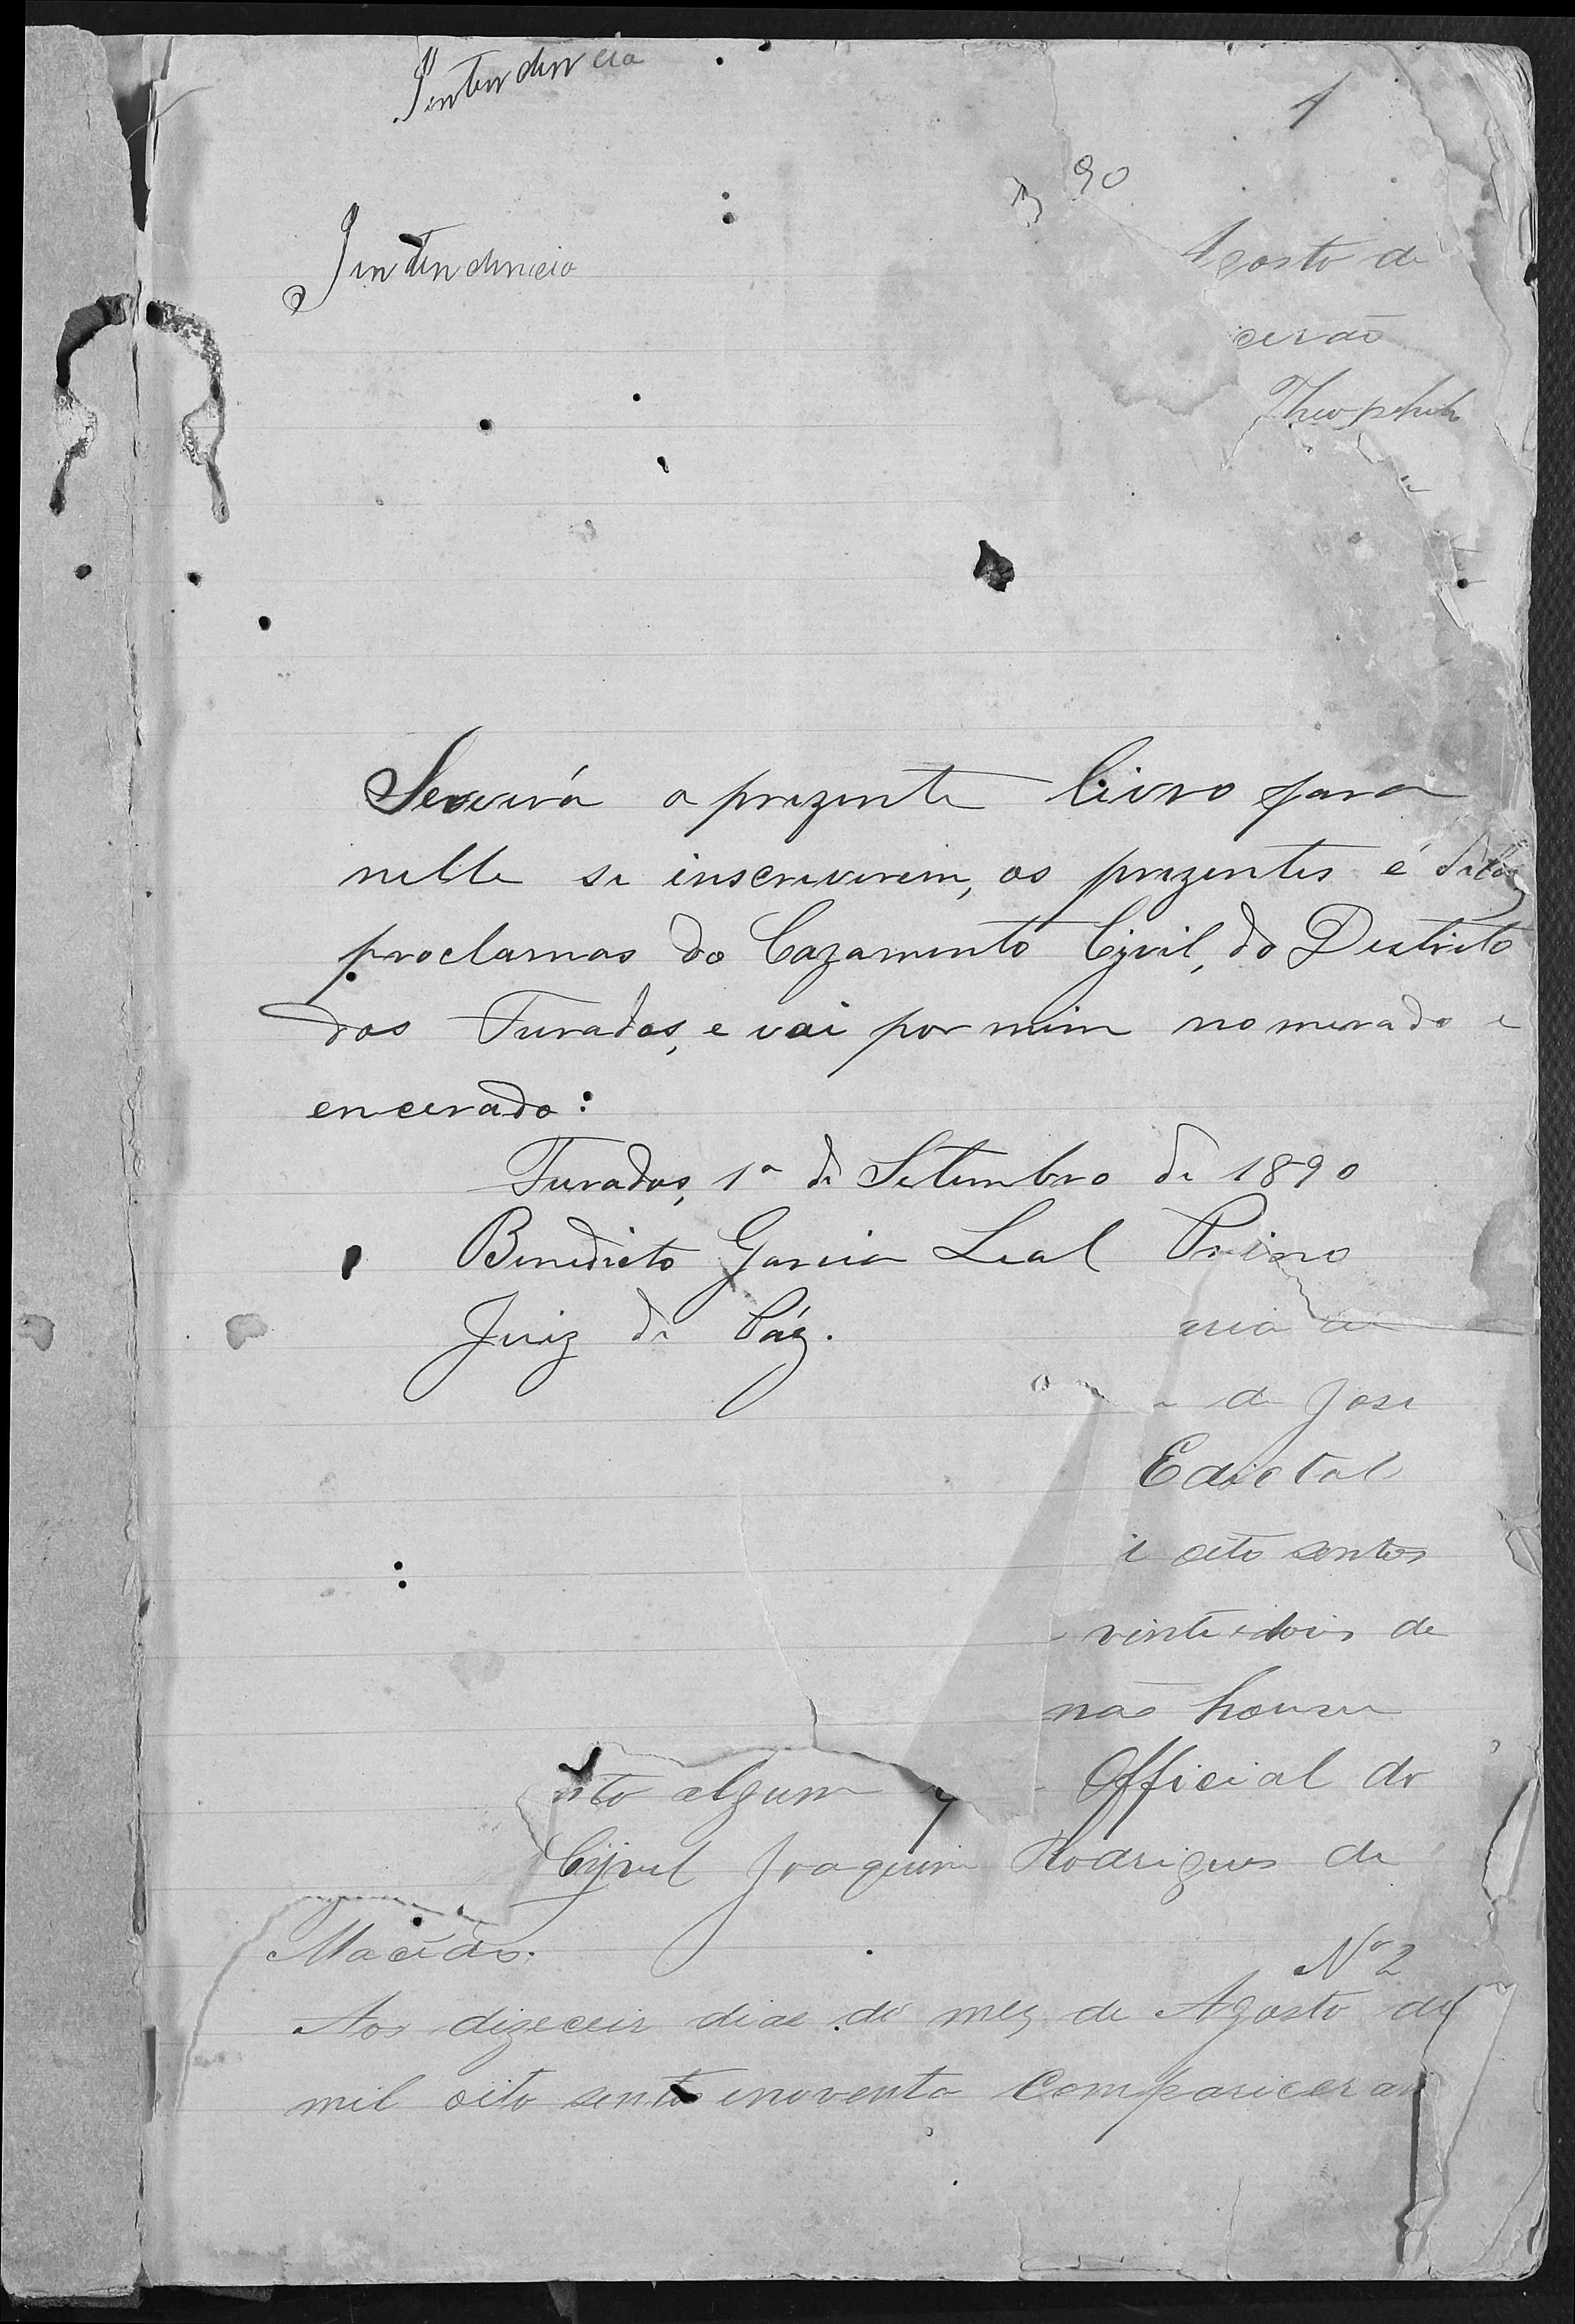 Intendencia
1
90
Intendencia
Agosto de
cerão
Theophilo
Servirá o prezente livro para
nelle se inscreverem, os prezentes é ditos
proclamas do Cazamento Civil, do Destrito
dos Furados, e vai por mim nomerado e
encerado:
Furados, 1º de Setembro de 1890
Benedicto Garcia Leal Primo
Juiz de Páz.
de Jose
Edictal
i oito sentos
vinte edois de
não houve
nto algum Official do
Cijvel Joaquim Rodrigues de
Macêdo.
Nº 2
Aos dizeceis dias do mez de Agosto de
mil oito sentos inoventa compariceran